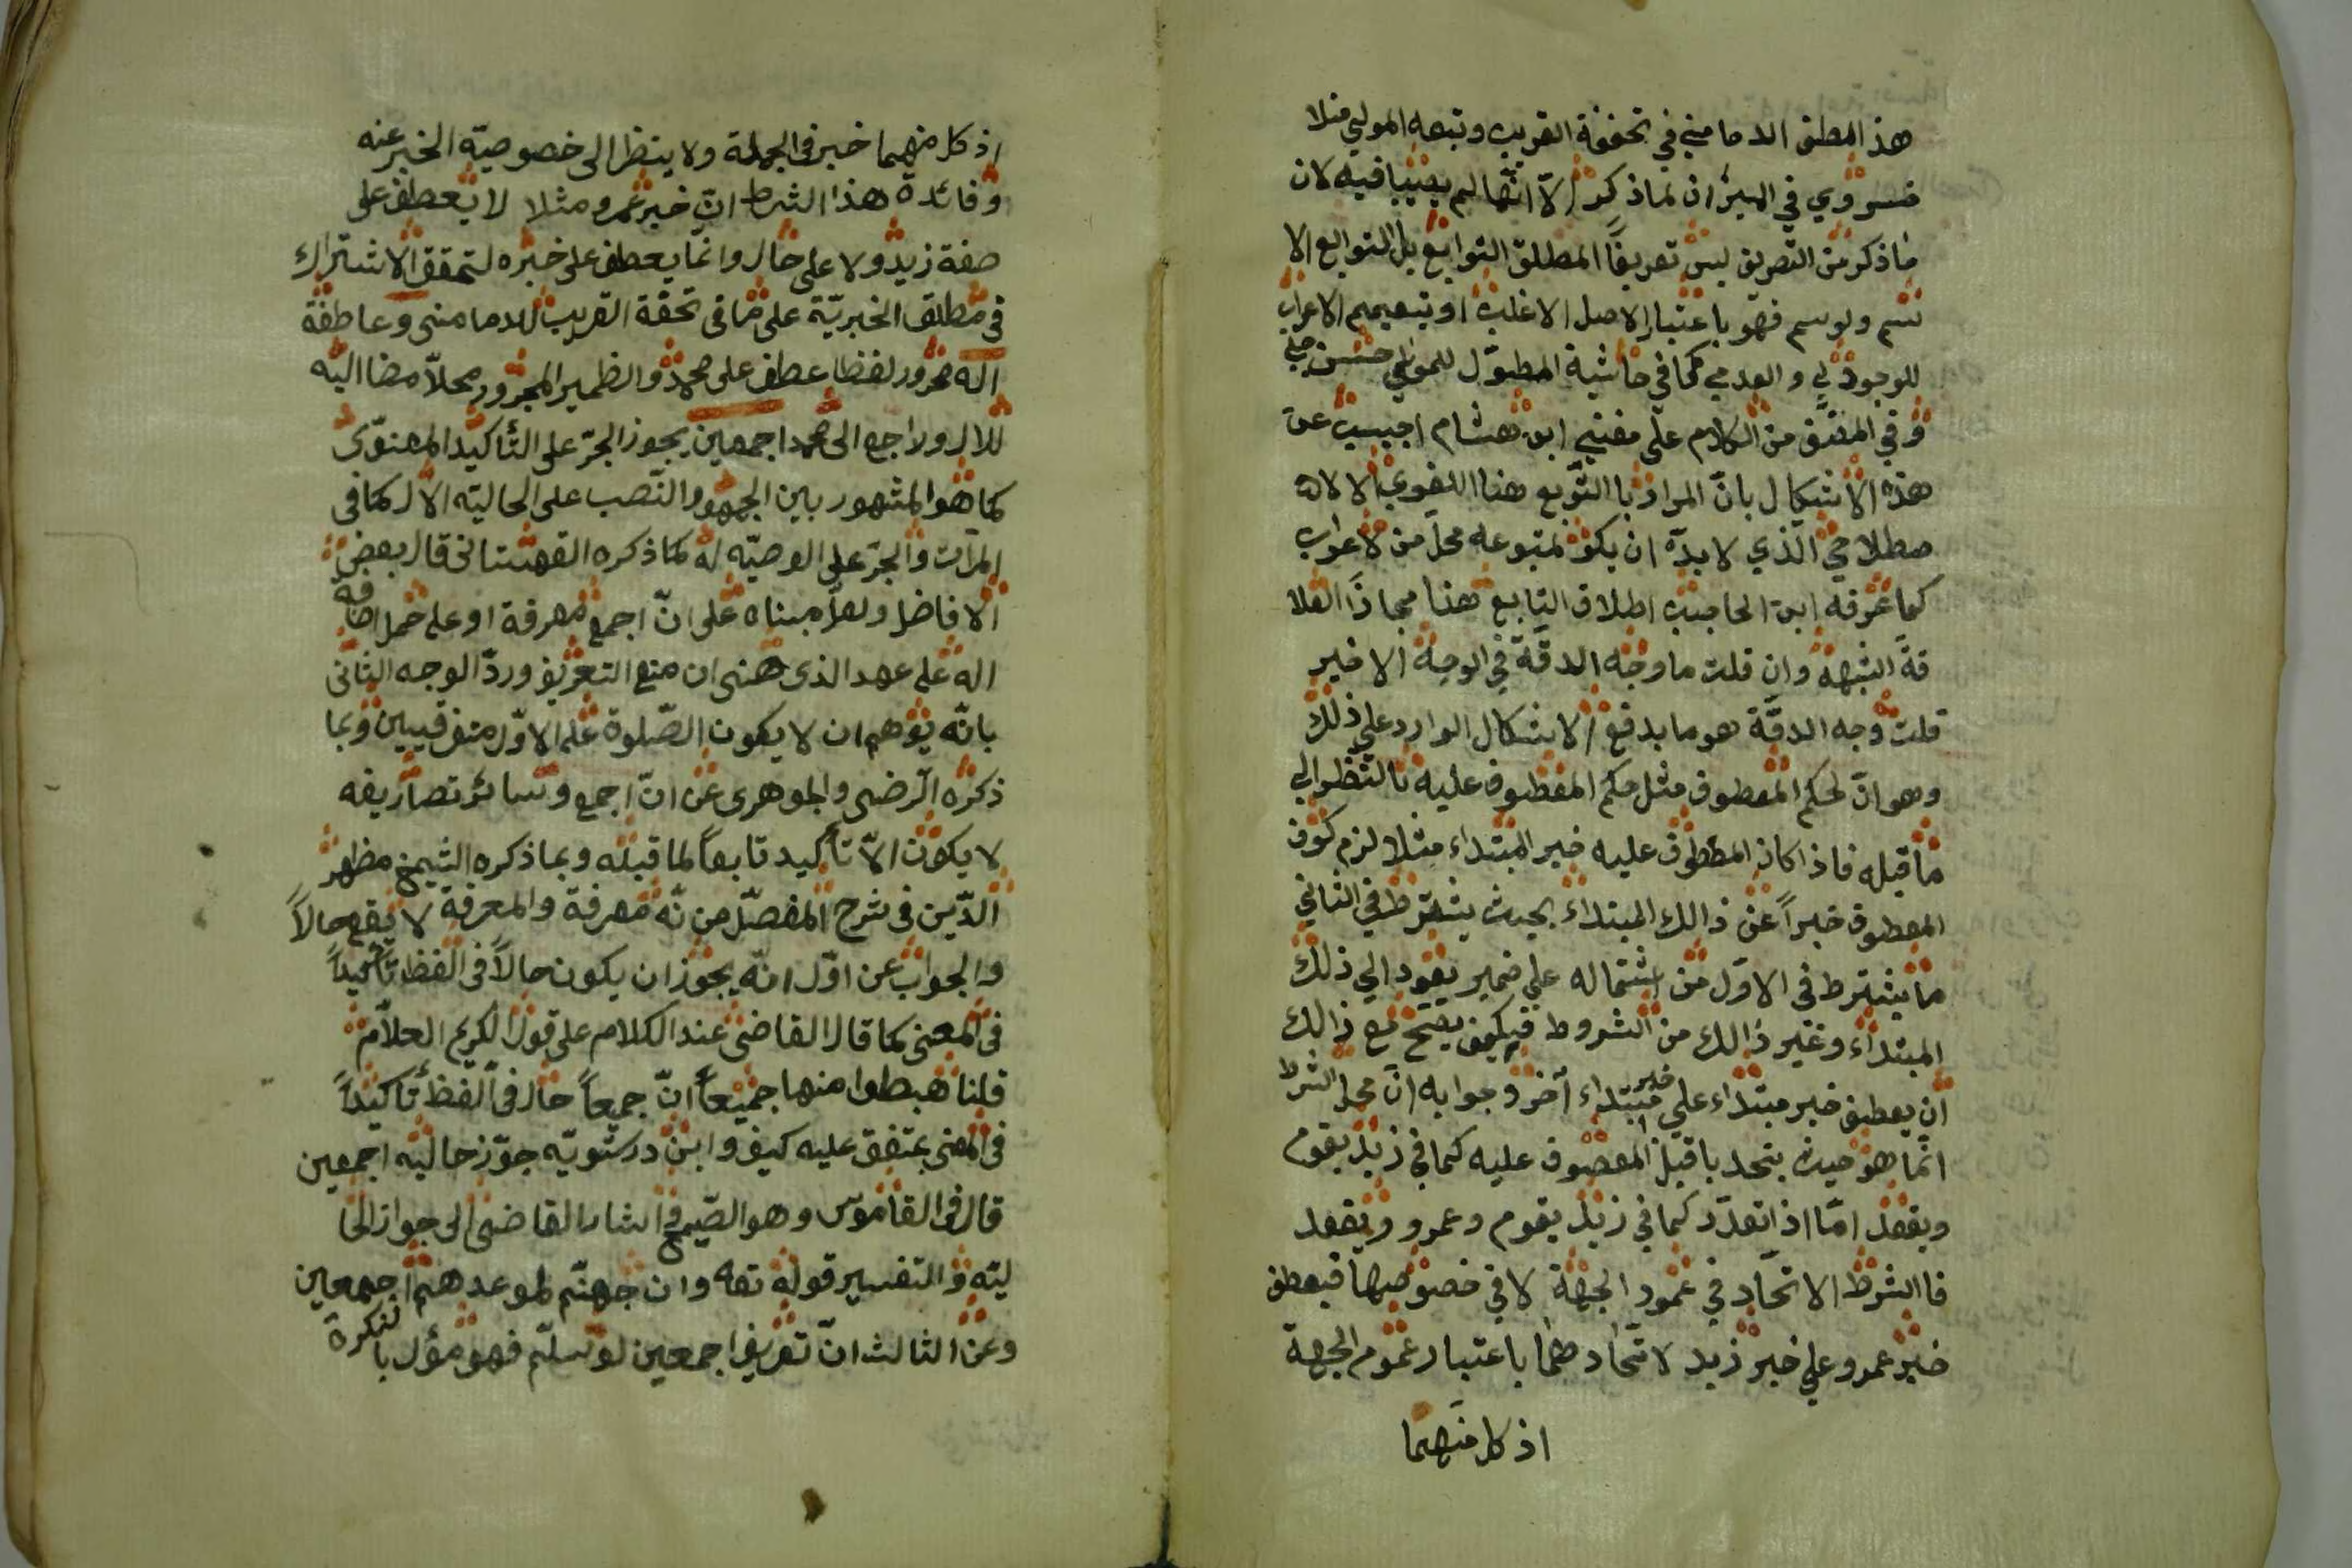 هذ المطلق الدمامیني في تحفقة القریب وتبعه المولي منلا
خسروي في المیزان لماذکر الّا انّهما لم یصیبا فیه لان
ماذکر من التعریق لیس تعریفاً المطلق التوابع بل التوابع الا
سم ولوسم فهو باعتبار الاصل الاغلب او بتعمیم الاعراب
للوجودي والعدمي کما في حاشیة المطوّل للمولي حسن چلبي
وفي المنصّف من الکلام علي مغني ابن هشام اجیب عن
هذه الاشکال بانّ المراد باالتّوبع هنا اللغوي لا لا
صطلاحي الّذي لا بدّه ان یکون لمتبوعه محلّ من لاعراب
کما عرّفه ابن الحاجب اطلاق التابع هنا مجازاً لعلا
قة الشبهة وان قلت ما وجه الدقّة في الوجه الاخیر
قلت وجه الدقّة هو ما یدفع الاشکال الوارد علي ذلك
وهو انّ لحکم المعطوف مثل حکم المعطوف علیه باالنّظر الي
ما قبله فاذا کان المعطوف علیه خبر المبتداء مثلا لزم کون
المعطوف خبراً عن ذالك المبتداء بحیث یشترط في الثاني
ما یشترط في الاوّل من اشتماله علي ضمیر یعود الي ذلك
المبتداء وغیر ذالك من الشروط فیکیف یصحّ مع ذالك
ان یعطف خبر مبتداء علي خبر مبتداء آخر وجوابه انّ محل الشرط
انّما هو حیث یتحد باقبل المعصوف علیه کما في زید یقوم
ویقعد امّا اذا تعدّد کما في زید یقوم وعمرو ویقعد
فاالشرط الاتحاد في عمود الجهة لا في خصوصیها فیعطف
خبر عمرو علي خبر زید لاتّحاد هما باعتبار عموم الجهة
اذ کل منهما
اذ کل منهما خبر فی الجملة ولا ینظر الی خصوصیّة الخبر عنه
وفائدة هذا الشرط انّ خبر عمرو مثلا لا یعطف علی
صفة زید ولا علی حال وانّما یعطف علی خبره لتحقق الاشتراك
فی مطلق الخبریّة علی ما فی تحقة القریب للدمامنی وعاطفة
اله مجرور لفظا عطف علی محمد والظمیر المجرور محلاّ مضا الیه
للال وراجع الی محمد اجمعین یجوز الجرّ علی التّأکید المعنوّی
کما هو المشهور بین الجمهور والنّصب علی الحالیّه الاّل کما فی
المرّات والجرّ علی الوصیّه له کما ذکره القهستانی قال بعض
الافاضل ولعلّ مبناه علی انّ اجمع معرفة او علی حمل اضافة
اله علی عهد الذی هنی ان منع التعریف وردّ الوجه الثانی
بانّه یوهم ان لا یکون الصّلوة علی الاوّل متفرقیین وبما
ذکره الرّضی والجوهری عن انّ اجمع وسائر تصاریفه
لا یکون الاّ تأکید تابعاً لما قبله وبما ذکره الشیخ مظهر
الدّین فی شرح المفصّل من نّه معرفة والمعرفة لا یقع حالاً
والجواب عن اوّل انّه یجوز ان یکون حالاً فی الفظ تأکیداً
فی المعنی کما قال القاضی عند الکلام علی قول الکریم العلاّم
قلنا هبطوا منها جمیعاً انّ جمیعاً حال فی الفظ تأکیداً
فی المعنی بمتفق علیه کیف وابن درستویّه جوّز حالیّه اجمعین
قال فی القاموس وهو الصّیح اشار القاضی الی جواز الحا
لیّه و التفسیر قوله تعه وان جهنّم لموعدهم اجمعین
وعن الثالث انّ تعریف اجمعین لو سلّم فهو مؤل با لنکرة